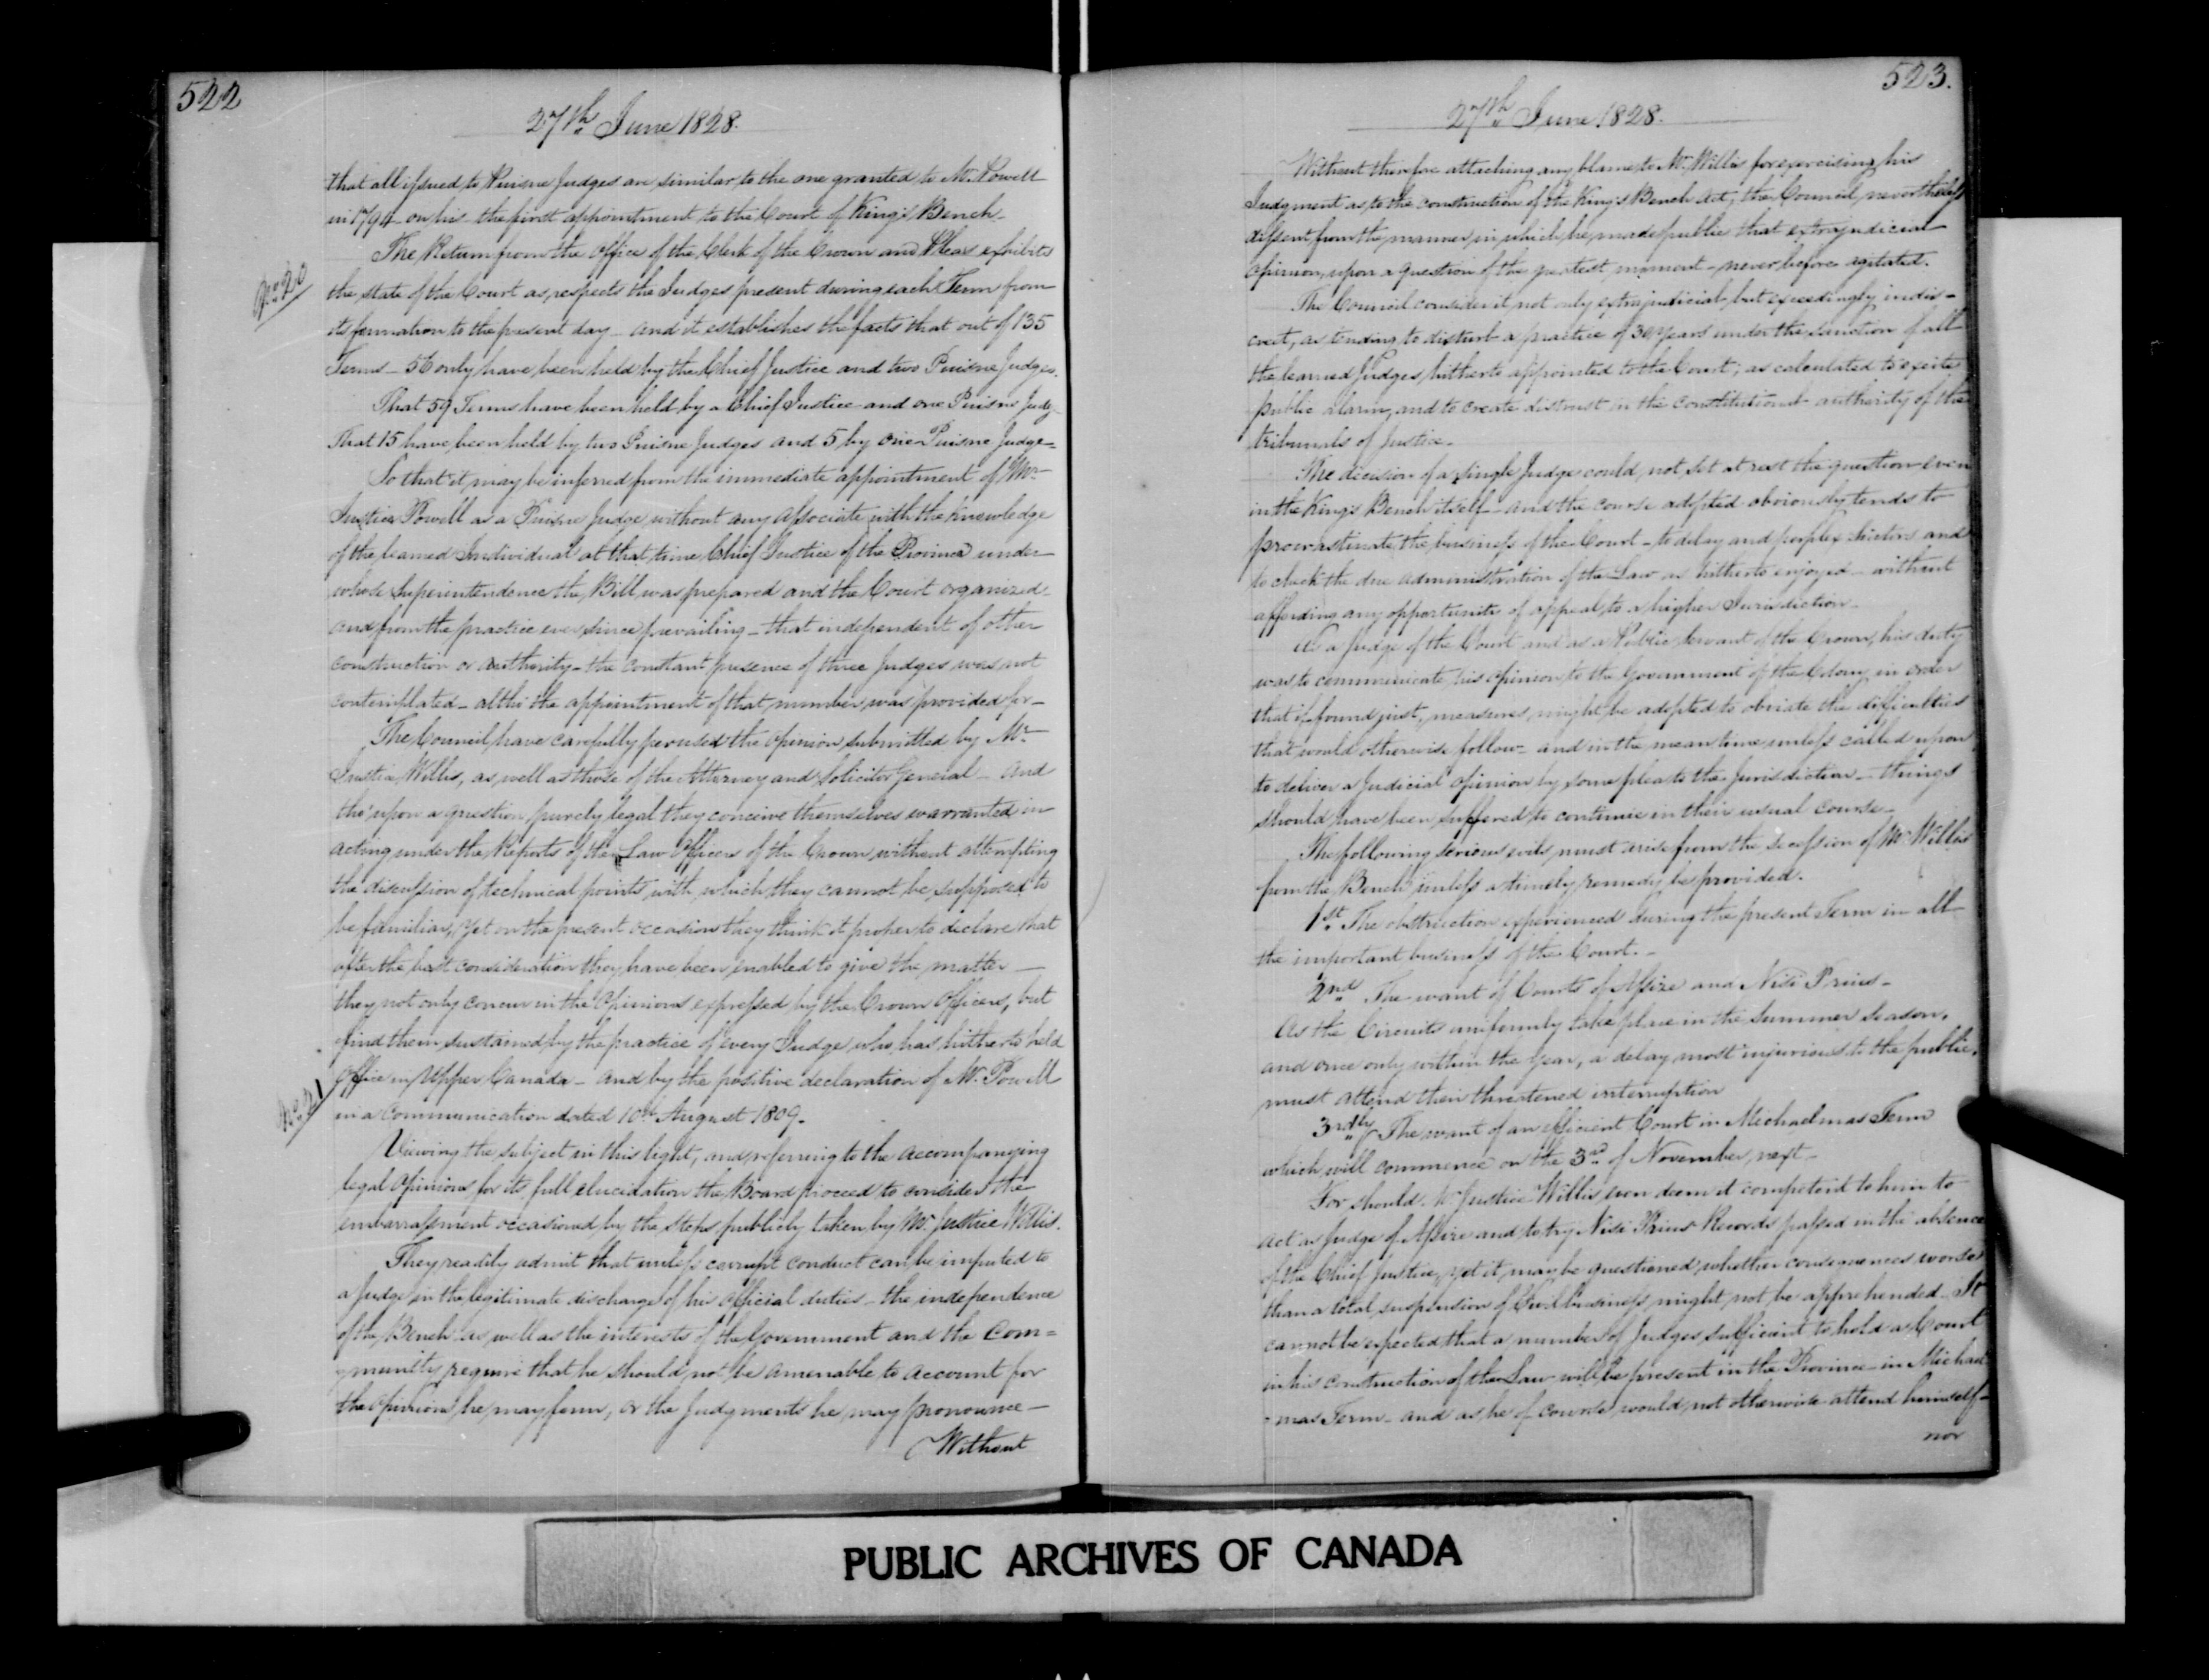 522
27th June 1828.
that all issued to Puisne Judges are similar to the one granted to Mr. Powell
in 1794 on his the first appointment to the Court of King's Bench-
No. 20
The Return from the Office of the Clerk of the Crown and Pleas exhibits
the state of the Court as respects the Judges present during each Term from
its formation to the present day - and it establishes the facts that out of 135
Terms - 56 only have been held by the Chief Justice and two Puisne Judges.
That 59 Terms have been held by a Chief Justice and one Puisne Judge
That 15 have been held by two Puisne Judges and 5 by one Puisne Judge-
So that it may be inferred from the immediate appointment of Mr
Justice Powell as a Puisne Judge without any Associate with the knowledge
of the learned Individual at that time Chief Justice of the Province under
whose Superintendence the Bill was prepared and the Court organized-
and from the practice ever since prevailing - that independent of other
construction or authority - the constant presence of three Judges was not
contemplated - altho' the appointment of that number was provided for-
The Council have carefully perused the opinion submitted by Mr
Justice Willis, as well as those of the Attorney and Solicitor General - and
tho' upon a question purely legal they conceive themselves warranted in
acting under the Reports of the Law Officers of the Crown without attempting
the discussion of technical points with which they cannot be supposed to
be familiar, Yet on the present occasion they think it proper to declare that
after the best consideration they have been enabled to give the matter -
they not only concur in the Opinions expressed by the Crown Officers, but
find them sustained by the practice of every Judge who has hitherto held
No. 21
Office in Upper Canada - and by the positive declaration of Mr. Powell
in a Communication dated 10th August 1809.
Viewing the subject in this light, and referring to the accompanying
legal Opinions for its full elucidation the Board proceed to consider the
embarrassment occasioned by the steps publicly taken by Mr. Justice Willis.
They readily admit that unless corrupt conduct can be imputed to
a Judge in the legitimate discharge of his Official duties - the independence
of the Bench as well as the interests of the Government and the Com=
munity require that he should not be amenable to account for
the Opinions he may form, or the Judgments he may pronounce -
Without
523.
27th June 1828.
Without therefore attaching any blame to Mr. Willis for exercising his
Judgment as to the construction of the King's Bench Act; the Council nevertheless
dissent from the manner in which he made public that extrajudicial
opinion, upon a question of the greatest moment - never before agitated.
The Council consider it not only extrajudicial but exceedingly indis-
creet, as tending to disturb a practice of 34 Years under the sanction of all
the learned Judges hitherto appointed to the Court; as calculated to excite
public alarm, and to create distrust in the constitutional authority of the
tribunals of Justice-
The decision of a single Judge could not set at rest the question even
in the King's Bench itself - and the course adopted obviously tends to
procrastinate the business of the Court - to delay and perplex Suitors and
to check the due administration of the Law as hitherto enjoyed - without
affording any opportunity of appeal to a higher Jurisdiction-
As a Judge of the Court and as a Public Servant of the Crown, his duty
was to communicate his opinion to the Government of the Colony in order
that if found just, measures might be adopted to obviate the difficulties
that would otherwise follow - and in the mean time unless called upon
to deliver a Judicial opinion by some plea to the Jurisdiction - things
should have been suffered to continue in their usual course-
The following serious evils must arise from the secession of Mr. Willis
from the Bench unless a timely remedy be provided.
1st. The obstruction experienced during the present Term in all
the important business of the Court.-
2nd The want of Courts of Assize and Nisi Prius-
As the Circuits uniformly take place in the Summer Season,
and once only within the Year, a delay most injurious to the public,
must attend their threatened interruption
3rdly The want of an efficient Court in Michaelmas Term
which will commence on the 3rd of November next-
For should Mr Justice Willis even deem it competent to him to
act as Judge of Assize and to try Nisi Prius Records passed in the absence
of the Chief Justice, yet it may be questioned whether consequences worse
than a total suspension of Civil business might not be apprehended - It
cannot be expected that a number of Judges sufficient to hold a Court
in his construction of the Law will be present in the Province in Michael
=mas Term - and as he of course would not otherwise attend himself-
nor
PUBLIC ARCHIVES OF CANADA